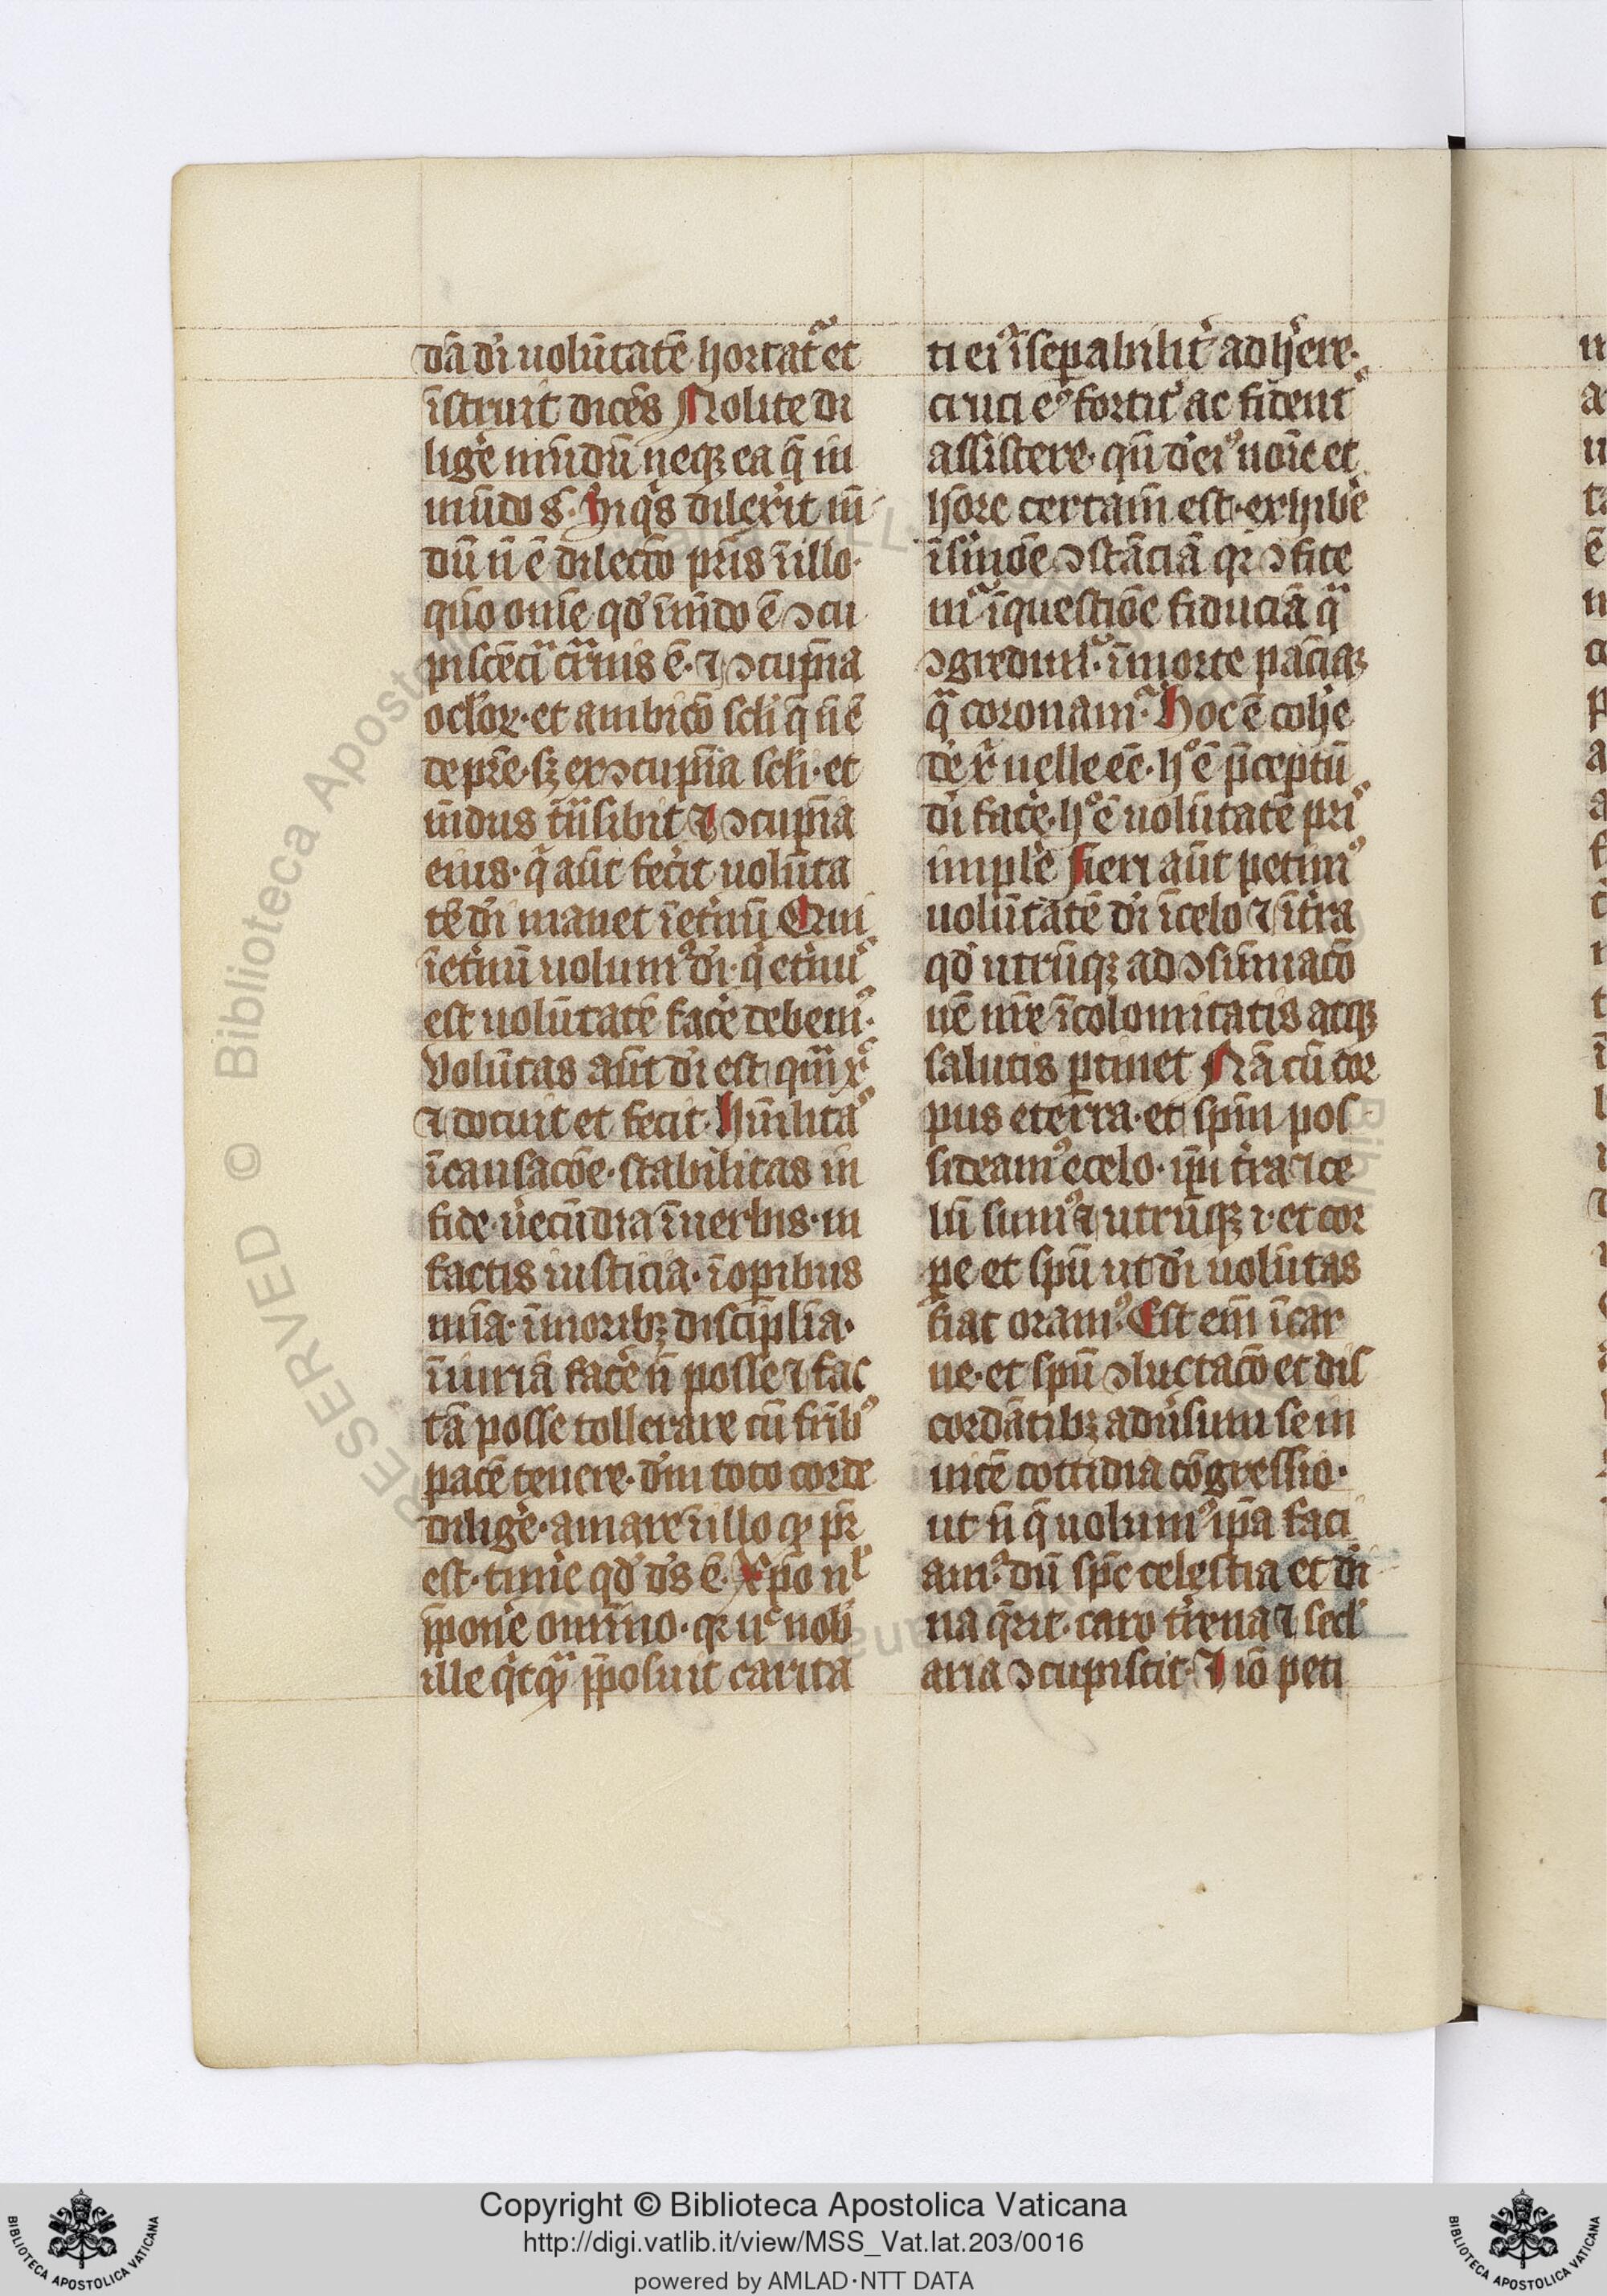 dā dī uolūtatē hortat᷑ et
īstruit dicēs Nolite di
ligē mūdū neqꝫ ea q̄ in
mūdo s̄. Siq̄s dilexͥit mū
dū nō ē dilectō pr̄is ī illo·
qm̄o om̄e qd̓ ī mūdo ē ↄcu
piscēcia carnis ē· ⁊ ↄcupīa
oclōꝝ· et ambicō scl̄i q̄ nō ē
de pr̄e· sꝫ ex ↄcupīa scl̄i· et
mūdus trāsibit ⁊ ↄcupīa
eius· q̄ aūt fecͥit uolūta
tē dī manet ī et̓nū Qui
ī et̓nū uolumꝰ dī· q̄ et̓nus
est uolūtatē facē debemꝰ·
Volūtas aūt dī est quā xꝰ
⁊ docuit et fecit· Hūilitas
ī cāusacōe· stabilitas in
fide· uēcūdia ī uerbis· in
factis iusticia· ī opībus
mīa· ī moribꝫ disciplīa·
īiuriā facē nō posse ⁊ fac
tā posse tollerare cū fr̄ibꝰ
pacē tenere· dm̄ toto corde
diligē· amare ī illo qͦ pr̄
est· timē qd̓ ds̄ ē· Xp̄o nͥ
p̄ponē omīno· qꝛ nͨ nob̄
ille q̄cqͣ p̄posuit carita
ti eiꝰ īsepabilit̓ adhēre·
cruci eꝰ fortit̓ ac fident̓
assistere· qn̄ d̓ eiꝰ noīe et
hōre certam̄ est· exhibē
ī smōe ↄstāciā qͣ ↄfite
mͬ ī questiōe fiduciā qͣ
ↄgredimͬ· ī morte paciāꝫ
qͣ coronamͬ· Hoc ē cohē
dē xͥ uelle eē· hͦ ē p̄ceptū
dī facē· hͦ ē uolūtatē pr̄is
implē Fieri aūt petimꝰ
uolūtatē dī ī celo ⁊ ī tr̓a
qd̓ utrūqꝫ ad ↄsūmacō
nē nr̄e īcolomitatis atqꝫ
salutis ꝑtinet Nā cū cor
pus e terra· et spm̄ pos
sideamꝰ e celo· ip̄i tr̓a ⁊ ce
lū sumꝰ ⁊ utrūqꝫ ·i· et cor
pe et spū ut dī uolūtas
fiat oramꝰ· Est em̄ ī car
ne· et spū ↄluctacō et dis
cordātibꝫ adūsum se in
uicē cottidiā cōgressio·
ut nō q̄ uolumꝰ ip̄a faci
amꝰ· dū spc̄ celestia et di
na q̄rit· caro tr̓ena ⁊ secl̓
aria ↄcupiscit· ⁊ iō peti
Copyright © Biblioteca Apostolica Vaticana
http://digi.vatlib.it/view/MSS_Vat.lat.203/0016
powered by AMLAD·NTT DATA
BIBLIOTECA APOSTOLICA VATICANA
BIBLIOTECA APOSTOLICA VATICANA